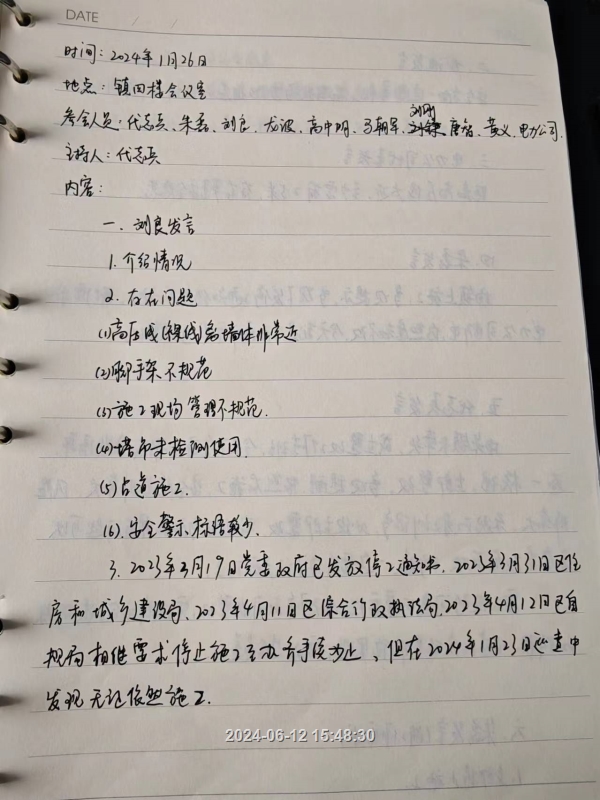 DATE
时间:2024年1月26日
地点:镇四楼会议室
刘刚
参会人员:代志兵、朱磊、刘良、龙波、高中明、马朝军、唐智、黄义、电力公司.
主持人:代志兵
内容:
一、刘良发言
1.介绍情况
2.存在问题
(1)高压线(裸线)离墙体非常近
(2)脚手架不规范
(3)施工现场管理不规范.
(4)塔吊未检测使用.
(5)占道施工.
(6).安全警示标语较少.
3、2023年3月19日党委政府已发放停工通知书.2023年3月31日区住
房和城乡建设局、2023年4月11日区综合行政执法局、2023年4月12日区自
规局相继要求停止施工至办齐手续为止、但在2024年1月23日巡查中
发现无证依然施工.
2024-06-12 15:48:30